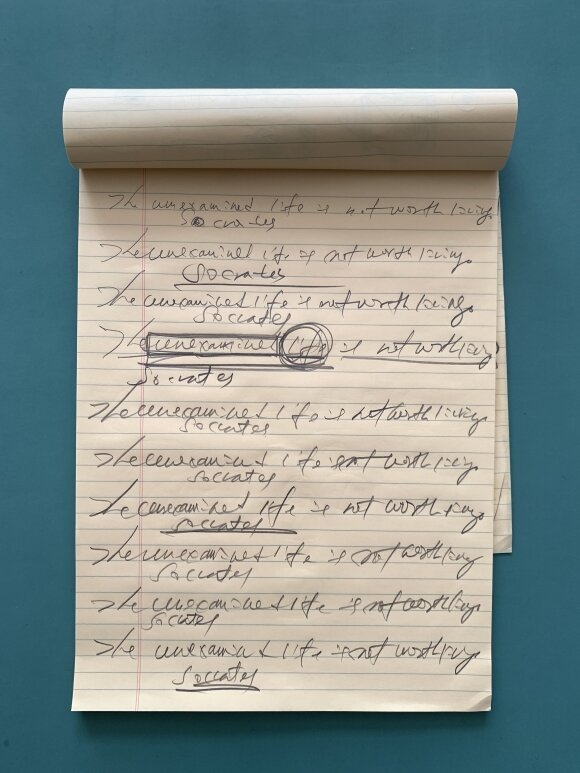 The unexamined life is not worth living.
Socrates
The unexamined life is not worth living.
Socrates
The unexamined life is not worth living.
Socrates
The unexamined life is not worth living
Socrates
The unexamined life is not worth living.
Socrates
The unexamined life is not worth living.
Socrates
The unexamined life is not worth living.
Socrates
The unexamined life is not worth living
Socrates
The unexamined life is not worth living.
Socrates
The unexamined life is not worth living.
Socrates